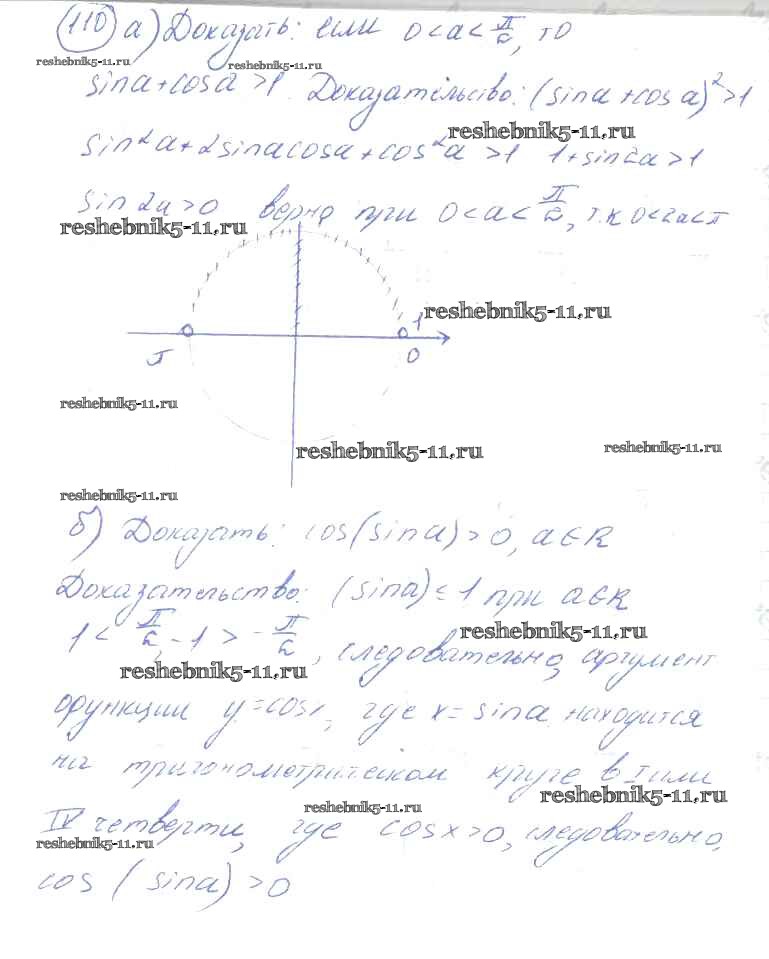 110 а) Доказать: если 0 < a < π/2, то
reshebnik5-11.ru reshebnik5-11.ru
sina + cosa > 1. Доказательство: (sina + cos a)² > 1
reshebnik5-11.ru
sin²a + 2sinacosa + cos²a > 1 1 + sin2a > 1
sin 2a > 0 верно при 0 < a < π/2, т.к 0 < 2a < π
reshebnik5-11.ru
reshebnik5-11.ru 1
π 0
reshebnik5-11.ru
reshebnik5-11.ru reshebnik5-11.ru
reshebnik5-11.ru
б) Доказать: cos(sin a) > 0, a ∈ R
Доказательство: (sina) ≤ 1 при a ∈ R
reshebnik5-11.ru
1 < π/2, -1 > -π/2, следовательно, аргумент
reshebnik5-11.ru
функции y = cosx, где x = sina находится
на тригонометрическом круге в I или
reshebnik5-11.ru
reshebnik5-11.ru
IV четверти, где cosx > 0, следовательно,
reshebnik5-11.ru
cos (sina) > 0